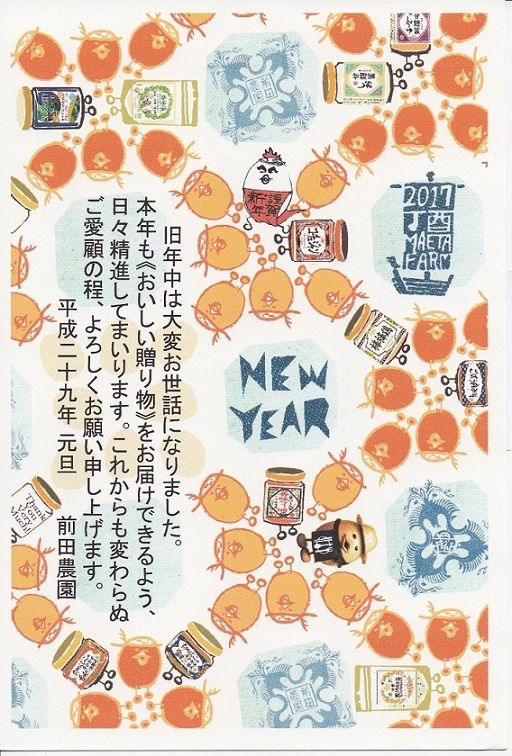 旧年中は大変お世話になりました。
本年も《おいしい贈り物》をお届けできるよう、
日々精進してまいります。これからも変わらぬ
ご愛顧の程、よろしくお願い申し上げます。
平成二十九年 元旦
前田農園
謹賀
新年
2017
丁酉
MAETA
FARM
NEW
YEAR
Thank
You
Very
Much!!